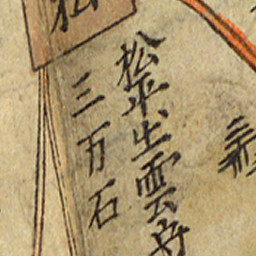 松
松平出雲守
三万石